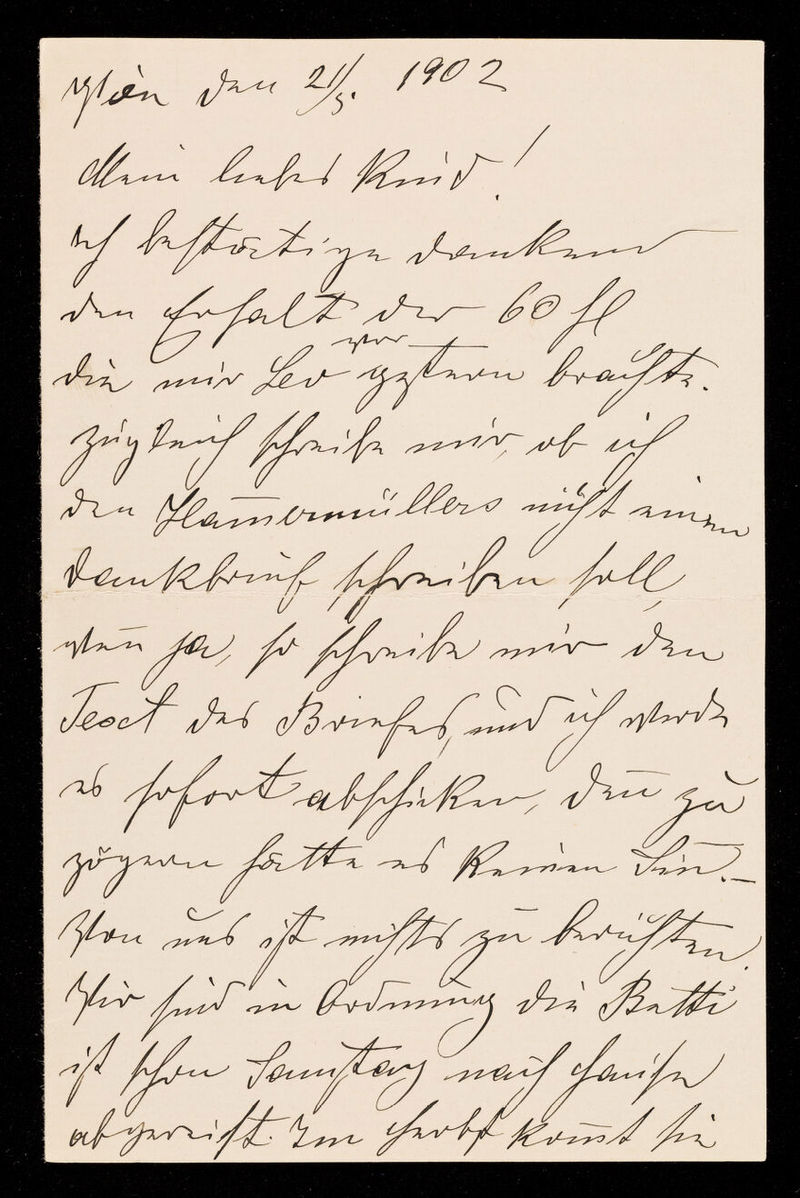 Wien den 21/5. 1902
Mein liebes Kind!
Ich bestätige dankend
den Erhalt der 60 fl
die mir Leo vorgestern brachte.
Zugleich schreibe mir, ob ich
den Ham̅ermüllers nicht einen
Dankbrief schreiben soll,
wen̅ ja, so schreibe mir den
Text des Briefes, und ich werde
es sofort abschicken, den̅ zu
zögern hätte es keinen Sin̅.—
Von uns ist nichts zu berichten.
Wir sind in Ordnung die Betti
ist schon Samstag nach Hause
abgereist. Im Herbst kom̅t sie